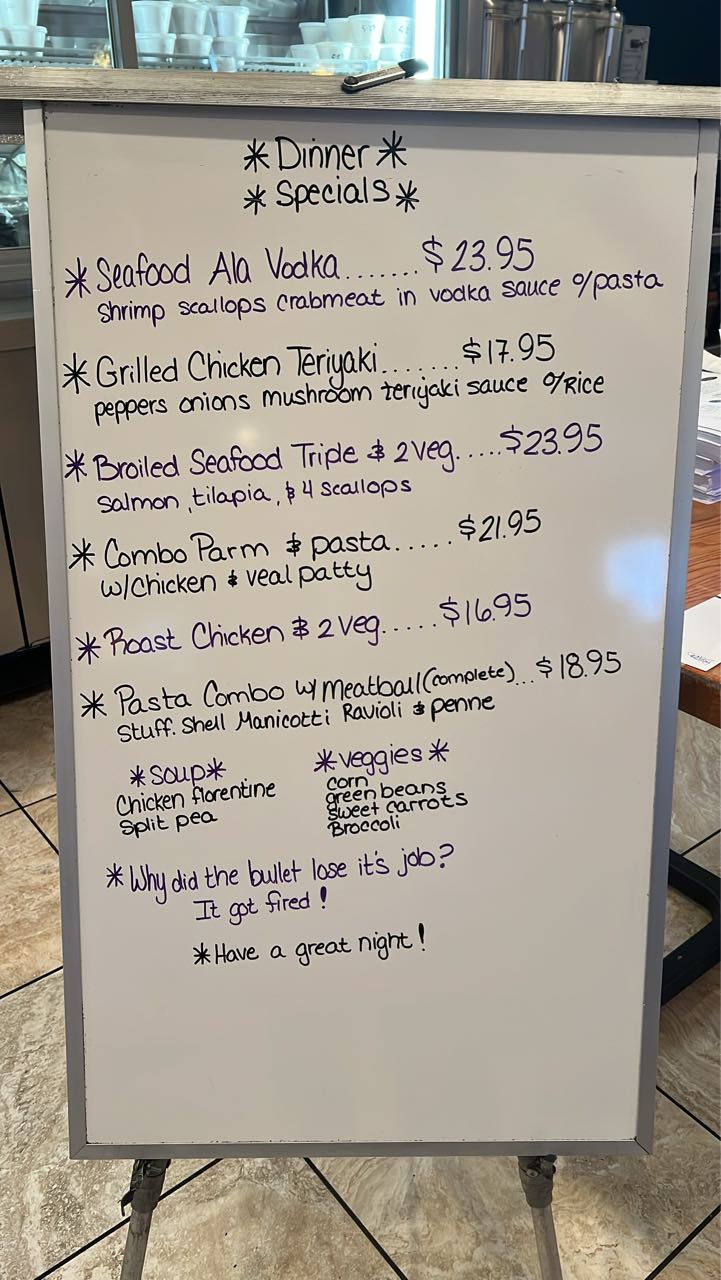 * Dinner *
* Specials *
* Seafood Ala Vodka.......$23.95
Shrimp scallops crabmeat in vodka sauce o/pasta
* Grilled Chicken Teriyaki.......$17.95
peppers onions mushroom teriyaki sauce o/Rice
* Broiled Seafood Triple & 2 veg.....$23.95
Salmon, tilapia, & 4 scallops
* Combo Parm & pasta.....$21.95
w/Chicken & veal patty
* Roast Chicken & 2 veg.....$16.95
* Pasta Combo w/ Meatball (complete)...$18.95
Stuff. Shell Manicotti Ravioli & penne
* Soup *
Chicken florentine
Split pea
* veggies *
corn
green beans
sweet carrots
Broccoli
* Why did the bullet lose it's job?
It got fired!
* Have a great night!